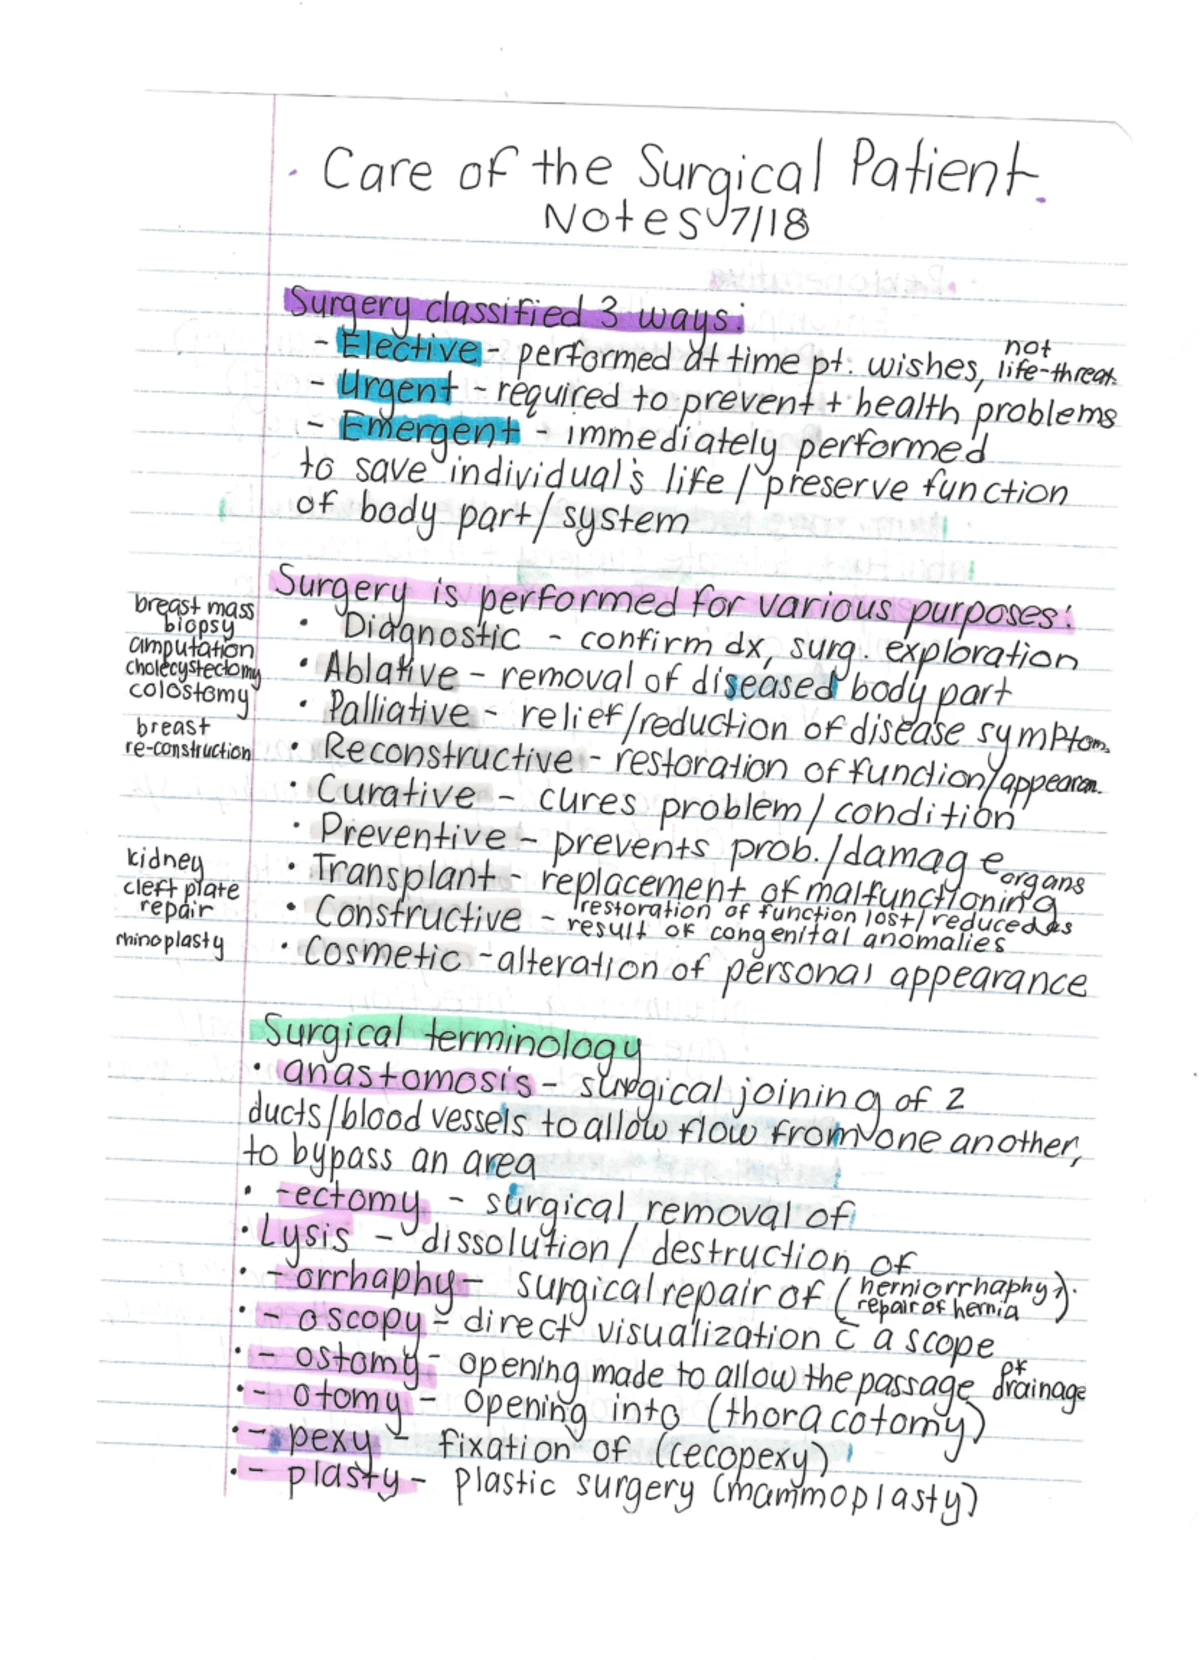 Care of the Surgical Patient
Notes 7/18
Surgery classified 3 ways:
- Elective - performed at time pt. wishes, not life-threat.
- Urgent - required to prevent + health problems
- Emergent - immediately performed
to save individual's life / preserve function
of body part/system
Surgery is performed for various purposes:
breast mass biopsy
• Diagnostic - confirm dx, surg. exploration
amputation
cholecystectomy
• Ablative - removal of diseased body part
colostomy
• Palliative - relief/reduction of disease symptom.
breast
re-construction
• Reconstructive - restoration of function/appearan.
• Curative - cures problem / condition
• Preventive - prevents prob./damage
kidney
• Transplant - replacement of malfunctioning organs
cleft plate
repair
• Constructive - restoration of function lost/reduced as
result of congenital anomalies
rhinoplasty
• Cosmetic - alteration of personal appearance
Surgical terminology
• anastomosis - surgical joining of 2
ducts/blood vessels to allow flow from one another,
to bypass an area
• -ectomy - surgical removal of
• Lysis - dissolution / destruction of
• - orrhaphy - surgical repair of (herniorrhaphy →
repair of hernia).
• - oscopy - direct visualization c̄ a scope
• - ostomy - opening made to allow the passage of drainage
• - otomy - opening into (thoracotomy)
• - pexy - fixation of (cecopexy)
• - plasty - plastic surgery (mammoplasty)